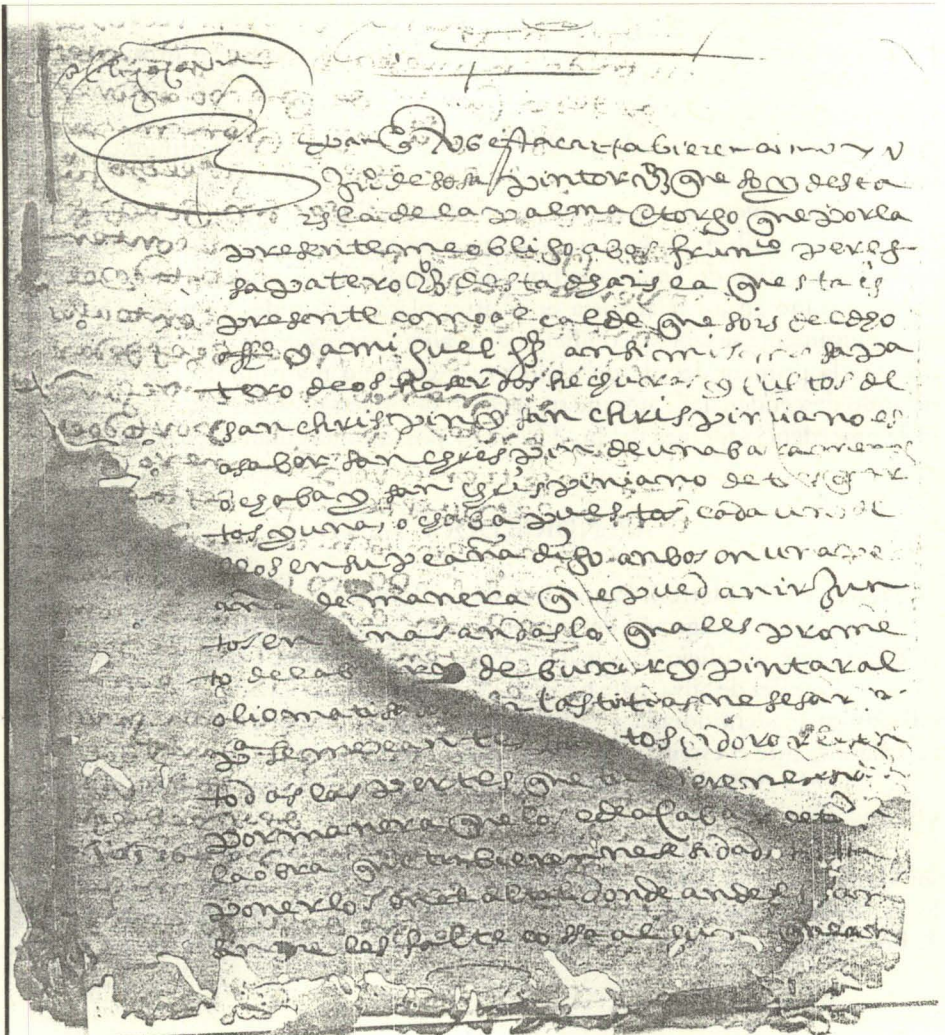 obligacion
quantos esta carta bieren como yo
Jun de sosa pintor vo que soy desta
ysla de la palma otorgo que por la
presente me obligo a bos franco peres
sapatero vo desta dha isla que stais
presente como alcalde que sois del dho
offo y a miguel hs ansimismo sapa
tero de os haser dos hechuras y bultos del
san chrispin y san chrispiniano es
a saber san chrispin de una bara menos
ochaba y san chrispiniano de tres quar
tos y una ochaba puestos cada uno
dellos en su peaña digo anbos on una pe
aña de manera que puedan ir Jun
tos en unas andas lo quales prome
to de de buxar y pintar al
olio las tintas nesesarias
pa semexantes tos y doro
todas las partes que nesesari
por manera que los e de acabar de toda
la obra que tubieren nesesidad hasta
ponerlos en el altar donde an de estar
sin que les falte cossa alguna